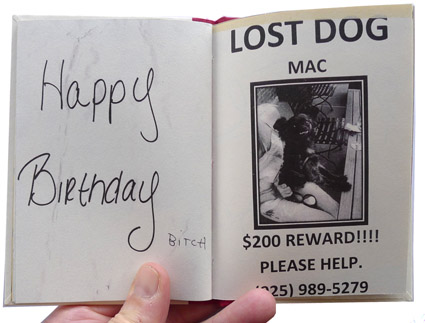 Happy
Birthday
BITCH
LOST DOG
MAC
$200 REWARD!!!!
PLEASE HELP.
989-5279